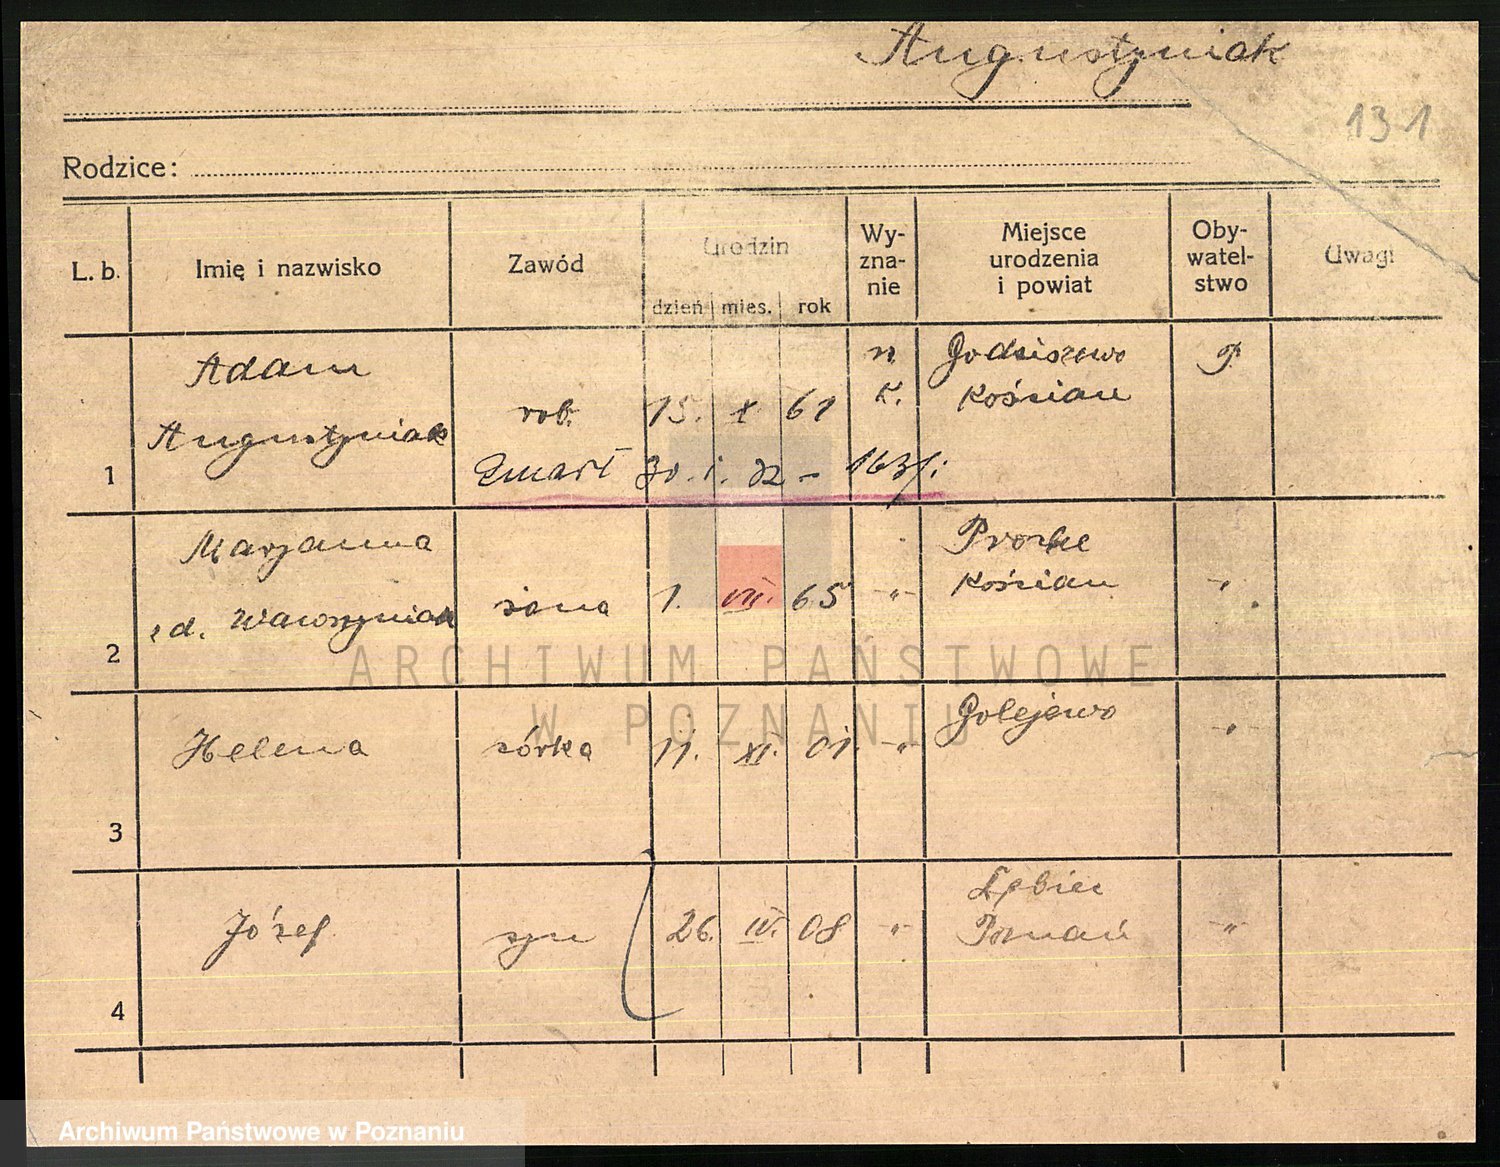 Augustyniak
131
Rodzice:
L. b.
Imię i nazwisko
Zawód
Urodzin
dzień
mies.
rok
Wy-
zna-
nie
Miejsce
urodzenia
i powiat
Oby-
watel-
stwo
Uwagi
1
Adam
Augustyniak
rob.
15. X 61
K.
Kościan
P.
Zmarł 30. I. 32 -
2
Maryanna
Wawrzyniak
żona
1. VII. 65
-"-
Kościan
3
Helena
córka
11. XI. 01.
-"-
Golejewo
4
Józef
syn
26. IV. 08
-"-
Dębiec
Poznań
-"-
ARCHIWUM PAŃSTWOWE
W POZNANIU
Archiwum Państwowe w Poznaniu